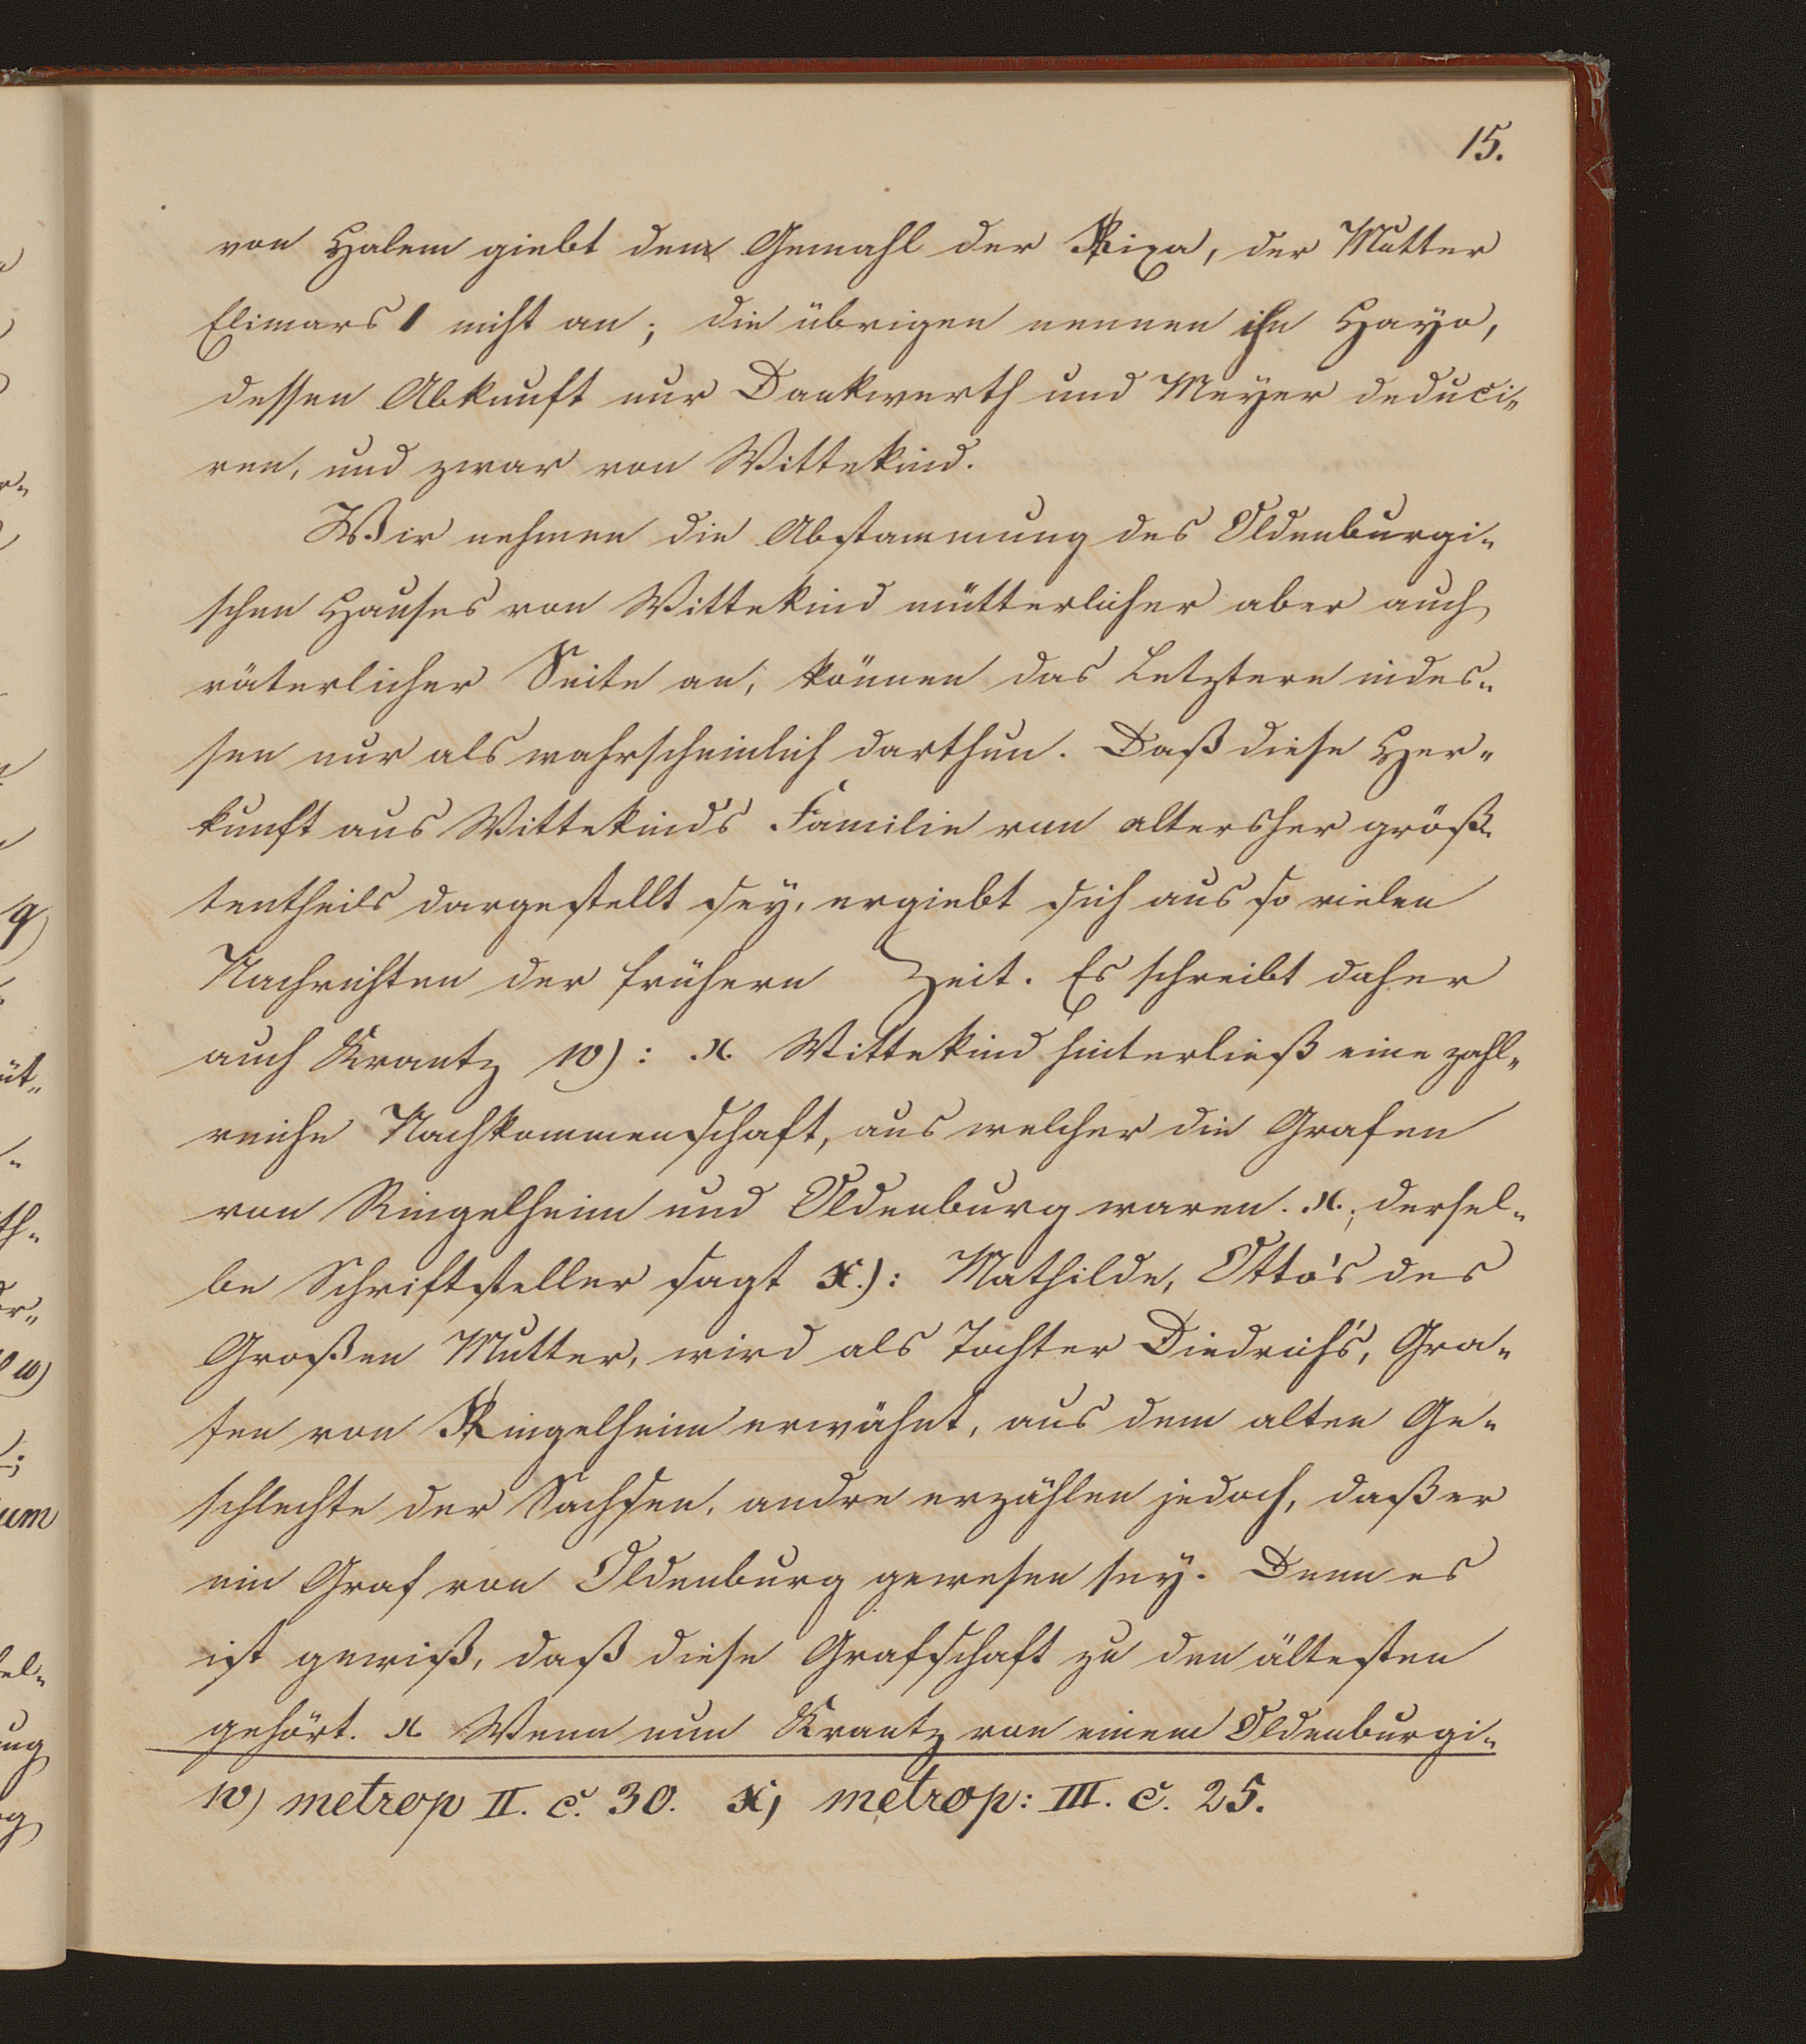 15.
von Halem giebt den Gemahl der Rixa, der Mutter
Elimars I nicht an; die übrigen nennen ihn Hayo,
dessen Abkunft nur Dankwerth und Meyer deduci„
ren, und zwar von Wittekind.
Wir nehmen die Abstammung des Oldenburgi„
schen Hauses von Wittekind mütterlicher aber auch
väterlicher Seite an, können das Letztere indes„
sen nur als wahrscheinlich darthun. Daß diese Her„
kunft aus Wittekind's Familie von altersher größ„
tentheils dargestellt sey, ergiebt sich aus so vielen
Nachrichten der frühern Zeit. Es schreibt daher
auch Krantz w): x. Wittekind hinterließ eine zahl„
reiche Nachkommenschaft, aus welcher die Grafen
von Ringelheim und Oldenburg waren. x.; dersel„
be Schriftsteller sagt x.): Mathilde, Otto's des
Großen Mutter, wird als Tochter Diedrich's, Gra„
fen von Ringelheim erwähnt, aus dem alten Ge„
schlechte der Sachsen, andre erzählen jedoch, daß er
ein Graf von Oldenburg gewesen sey. Denn es
ist gewiß, daß diese Grafschaft zu den ältesten
gehört. x. Wenn nun Krantz von einem Oldenburgi„
w) metrop II. c. 30. x) metrop: III. c. 25.